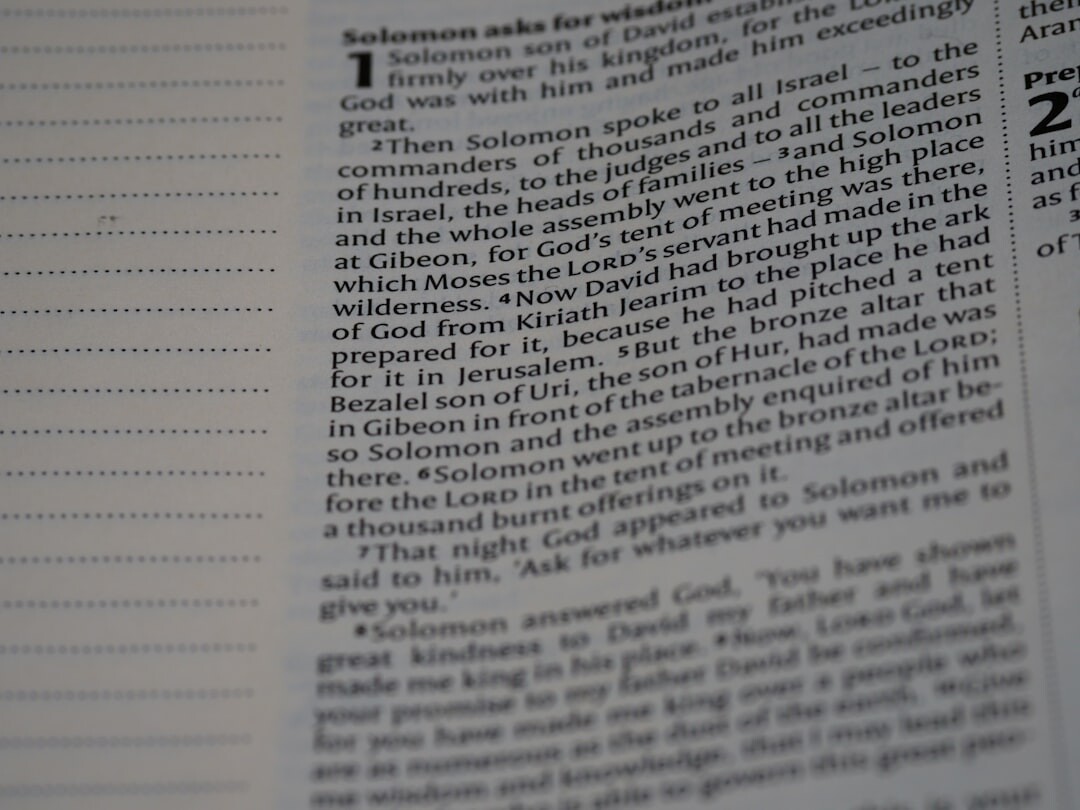 Solomon asks for wisdom
1 Solomon son of David established
firmly over his kingdom, for the LORD
God was with him and made him exceedingly
great.
2 Then Solomon spoke to all Israel – to the
commanders of thousands and commanders
of hundreds, to the judges and to all the leaders
in Israel, the heads of families – 3 and Solomon
and the whole assembly went to the high place
at Gibeon, for God's tent of meeting was there,
which Moses the LORD's servant had made in the
wilderness. 4 Now David had brought up the ark
of God from Kiriath Jearim to the place he had
prepared for it, because he had pitched a tent
for it in Jerusalem. 5 But the bronze altar that
Bezalel son of Uri, the son of Hur, had made was
in Gibeon in front of the tabernacle of the LORD;
so Solomon and the assembly enquired of him
there. 6 Solomon went up to the bronze altar be-
fore the LORD in the tent of meeting and offered
a thousand burnt offerings on it.
7 That night God appeared to Solomon and
said to him, 'Ask for whatever you want me to
give you.'
8 Solomon answered God, 'You have shown
great kindness to David my father and have
made me king in his place. 9 Now, LORD God, let
your promise to my father David be confirmed,
for you have made me king over a people who
are as numerous as the dust of the earth. 10 Give
me wisdom and knowledge, that I may lead this
is able to govern this great peo-
2
him
and
as f
3
of T